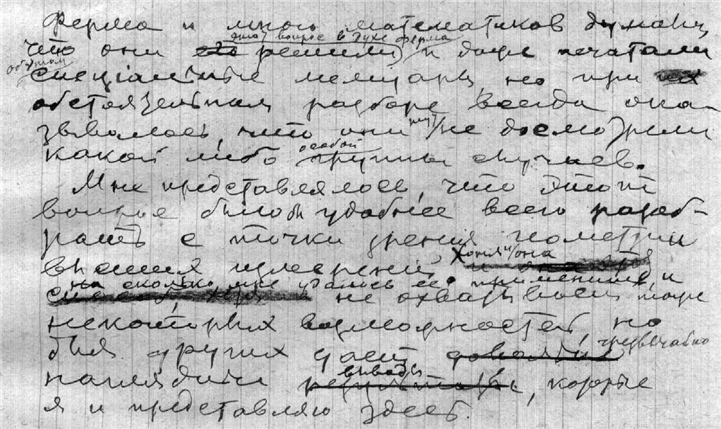 Ферма и много математиков думали,
этот вопрос в духе Ферма
что они решили и даже печатали
об этом
специальные мемуары, но при
обстоятельном разборе всегда ока-
зывалось, что они не досмотрели
какой либо особой группы случаев.
Мне представлялось, что этот
вопрос было бы удобнее всего разоб-
рать с точки зрения геометрии
высших измерений, хотя она
на сколько мне удалось ее применить, и
не охватывает тоже
некоторых возможностей, но
для других дает чрезвычайно
наглядные выводы, которые
я и представляю здесь.